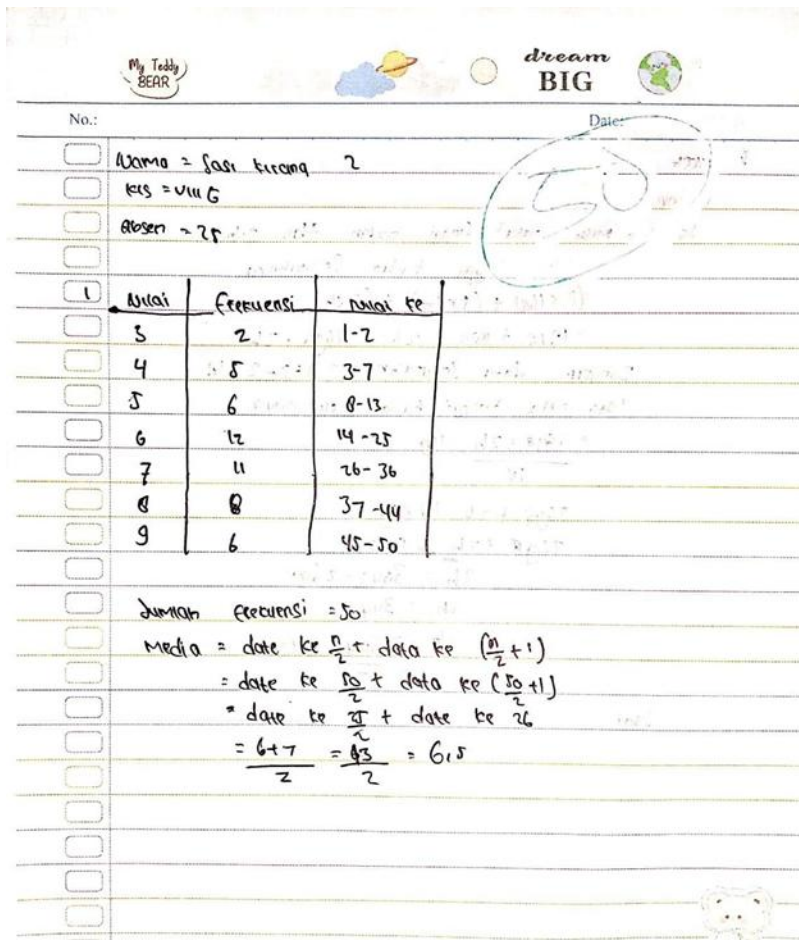 My Teddy
BEAR
dream
BIG
No.:
Date:
Nama = Sasi kirana 2
kls = VIII G
Absen = 25
50
1 Nilai frekuensi Nilai ke
3 2 1-2
4 5 3-7
5 6 8-13
6 12 14-25
7 11 26-36
8 8 37-44
9 6 45-50
Jumlah frekuensi = 50
Media = date ke n/2 + data ke (n/2 + 1)
= date ke 50/2 + data ke (50/2 + 1)
= date ke 25 + date ke 26
2
= 6+7/2 = 13/2 = 6,5